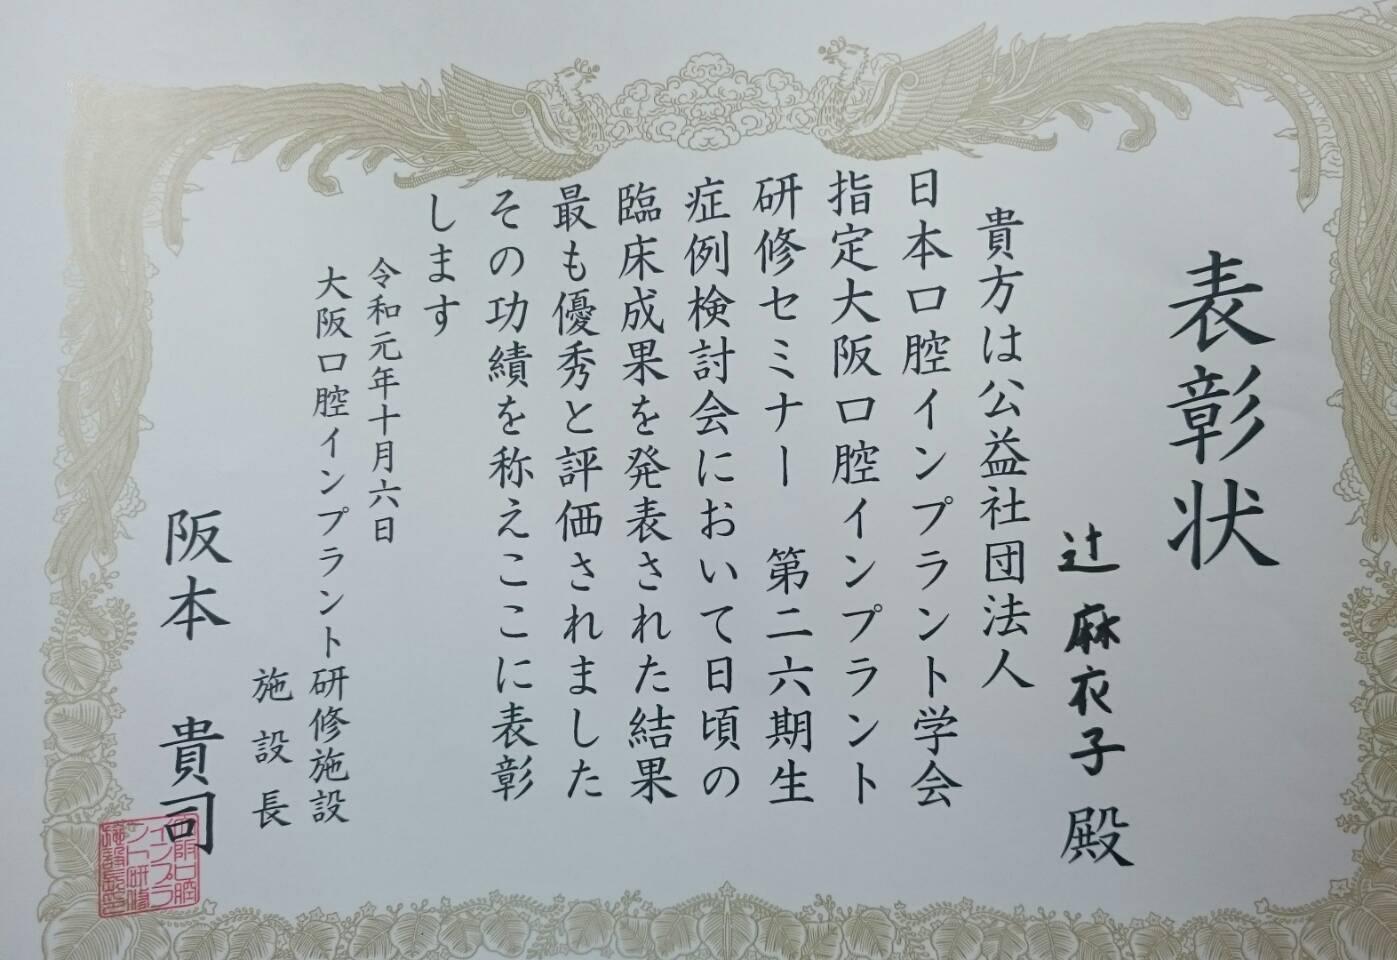 表彰状
辻 麻衣子 殿
貴方は公益社団法人
日本口腔インプラント学会
指定大阪口腔インプラント
研修セミナー 第二六期生
症例検討会において日頃の
臨床成果を発表された結果
最も優秀と評価されました
その功績を称えここに表彰
します
令和元年十月六日
大阪口腔インプラント研修施設
施設長
阪本 貴司
大阪口腔
インプラ
ント研修
施設長印